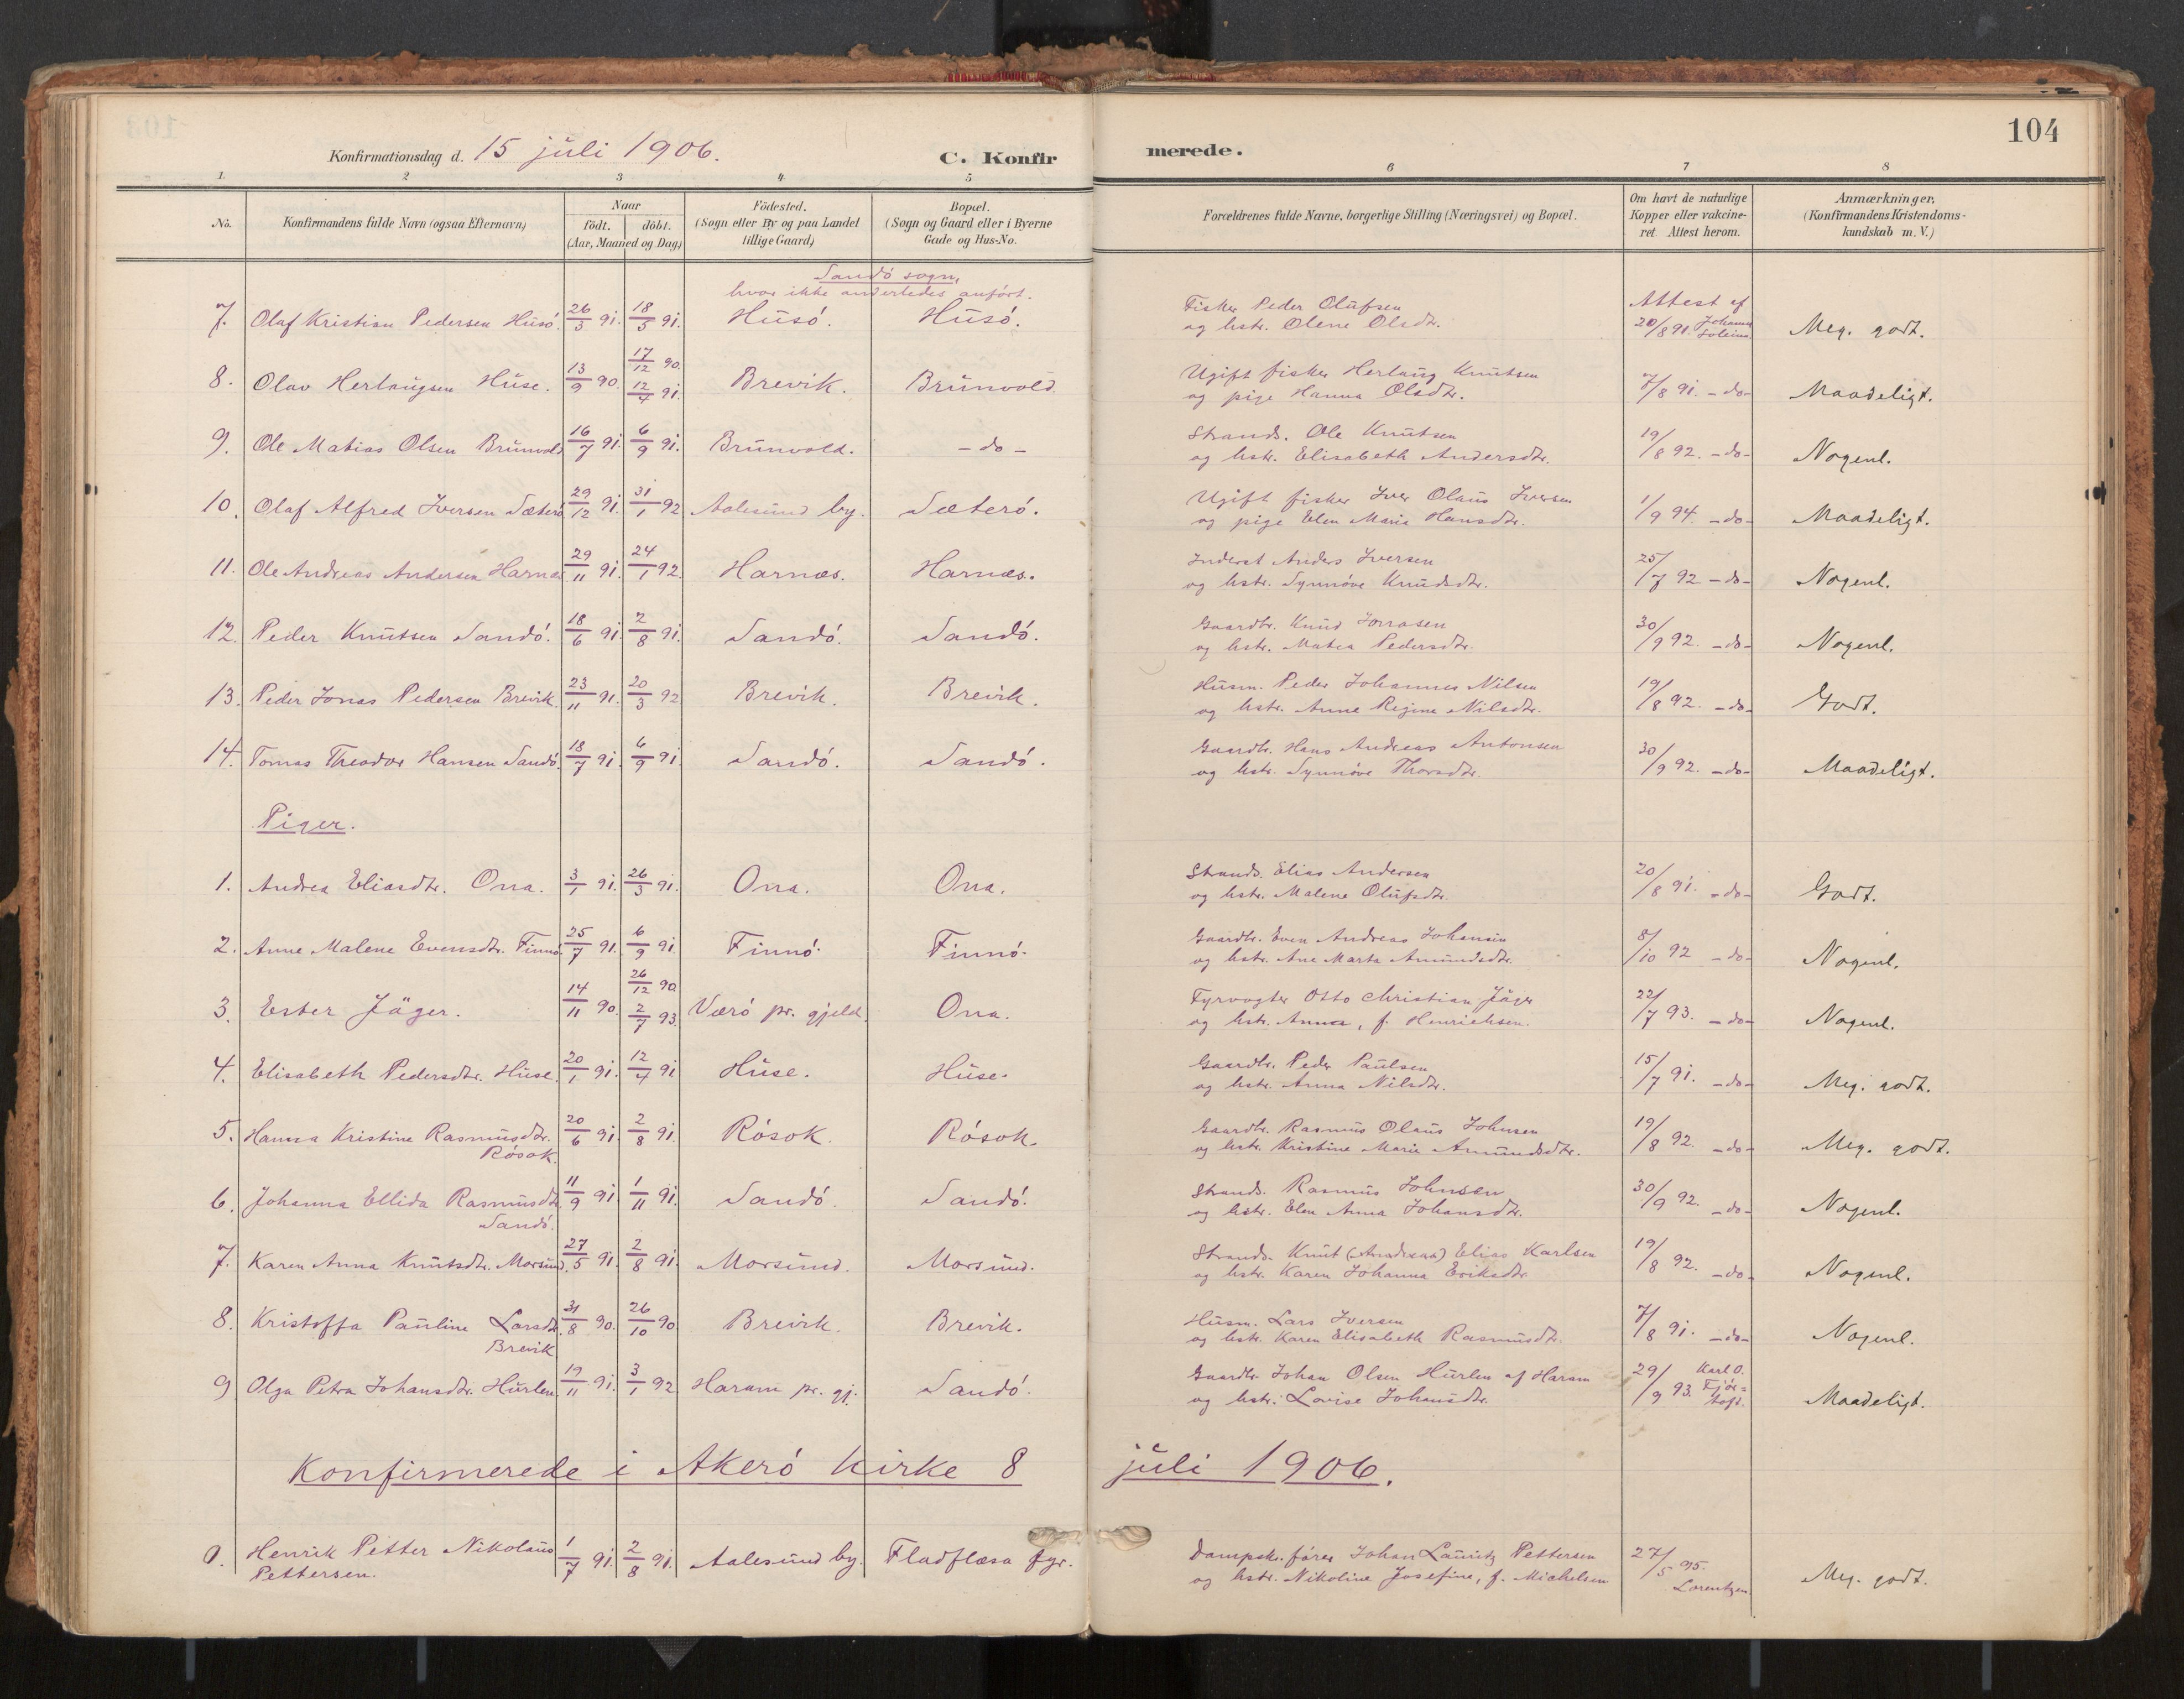 104
Konfirmationsdag d. 15 juli 1906. C. Konfirmerede.
1. 2 3 4 5 6 7 8
No. Konfirmandens fulde Navn (ogsaa Efternavn) Naar født. døbt. (Aar, Maaned og Dag) Fødested. (Sogn eller By og paa Landet tillige Gaard) Bopæl. (Sogn og Gaard eller i Byerne Gade og Hus-No. Forældrenes fulde Navne, borgerlige Stilling (Næringsvei) og Bopæl. Om havt de naturlige Kopper eller vakcineret. Attest herom. Anmærkninger. (Konfirmandens Kristendomskundskab m. V.)
Sandó sogn,
hvor ikke anderledes anfört.
7. Olaf Kristian Pedersen Husó. 26/3 91. 18/5 91. Husó. Husó. Fisker Peder Olufsen
og hstr. Olene Olsdtr. Attest af 20/8 91. Meg. godt.
8. Olav Herlaugsen Huse. 13/9 90. 17/12 90. 12/4 91. Brevik. Brunvold. Ugift fisker Herlaug Knutsen
og pige Hanna Olsdtr. 7/8 91. - do - Maadeligt.
9. Ole Matias Olsen Brunvold 16/7 91. 6/9 91. Brunvold. - do - Strands. Ole Knutsen
og hstr. Elisabeth Andersdtr. 19/8 92. - do - Nogenl.
10. Olaf Alfred Iversen Sæteró 29/12 91. 31/1 92 Aalesund by. Sæteró. Ugift fisker Iver Olaus Iversen
og pige Elen Maria Hansdtr. 1/9 94. - do - Maadeligt.
11. Ole Andreas Andersen Harnæs 29/11 91. 24/1 92. Harnæs. Harnæs. Inderst Anders Iversen
og hstr. Synnóve Knudsdtr. 25/7 92 - do - Nogenl.
12. Peder Knutsen Sandó. 18/6 91. 2/8 91. Sandó. Sandó. Gaardbr. Knud Jonasen
og hstr. Matea Pedersdtr. 30/9 92. - do - Nogenl.
13. Peder Jonas Pedersen Brevik. 23/11 91. 20/3 92 Brevik. Brevik. Husm. Peder Johannes Nilsen
og hstr. Anne Regine Nilsdtr. 19/8 92. - do - Godt.
14. Tomas Theodor Hansen Sandó. 18/7 91. 6/9 91. Sandó. Sandó. Gaardbr. Hans Andreas Antonsen
og hstr. Synnóve Thorsdtr. 30/9 92. - do - Maadeligt.
Piger.
1. Andrea Eliasdtr. Ona. 3/1 91. 26/3 91. Ona. Ona. Strands. Elias Andersen
og hstr. Malene Olufsdtr. 20/8 91. - do - Godt.
2. Anne Malene Evensdtr. Finnó. 25/7 91. 6/9 91. Finnó. Finnó. Gaardbr. Even Andreas Johansen
og hstr. Ane Marta Amundsdtr. 8/10 92 - do - Nogenl.
3. Ester Jäger. 14/11 90. 26/12 90 2/7 93. Væró pr. gjeld. Ona. Fyrvogter Otto Christian Jäger
og hstr. Anna, f. Henrichsen. 22/7 93. - do - Nogenl.
4. Elisabeth Pedersdtr. Huse. 20/1 91. 12/4 91 Huse. Huse. Gaardbr. Peder Paulsen
og hstr. Anna Nilsdtr. 15/7 91. - do - Meg. godt.
5. Hanna Kristine Rasmusdtr.
Rósok. 20/6 91. 2/8 91. Rósok. Rósok. Gaardbr. Rasmus Olaus Johnsen
og hstr. Kristine Marie Amundsdtr. 19/8 92. - do - Meg. godt.
6. Johanna Ellida Rasmusdtr.
Sandó. 11/9 91. 1/11 91. Sandó. Sandó. Strands. Rasmus Johnsen
og hstr. Elen Anna Johansdtr. 30/9 92. - do - Nogenl.
7. Karen Anna Knutsdtr. Morsund. 27/5 91. 2/8 91. Morsund. Morsund. Strands. Knut (Andreas) Elias Karlsen
og hstr. Karen Johanna Eriksdtr. 19/8 92. - do - Nogenl.
8. Kristoffa Pauline Larsdtr.
Brevik 31/8 90. 26/10 90 Brevik. Brevik. Husm. Lars Iversen
og hstr. Karen Elisabeth Rasmusdtr. 7/8 91. - do - Nogenl.
9 Olga Petra Johansdtr. Hurlen 19/11 91. 3/1 92 Haram pr. gj. Sandó. Gaardbr Johan Olsen Hurlen af Haram
og hstr. Lovise Johansdtr. 29/9 93. Karl O. Fjörtoft. Maadeligt.
Konfirmerede i Akeró kirke 8 juli 1906.
Henrik Petter Nikolaus
Pettersen. 1/7 91. 2/8 91. Aalesund by. Fladflæsa fyr. Dampsk.förer Johan Lauritz Pettersen
og hstr. Nikoline Josefine, f. Michelsen 27/5 95. Lorentzen Meg. godt.